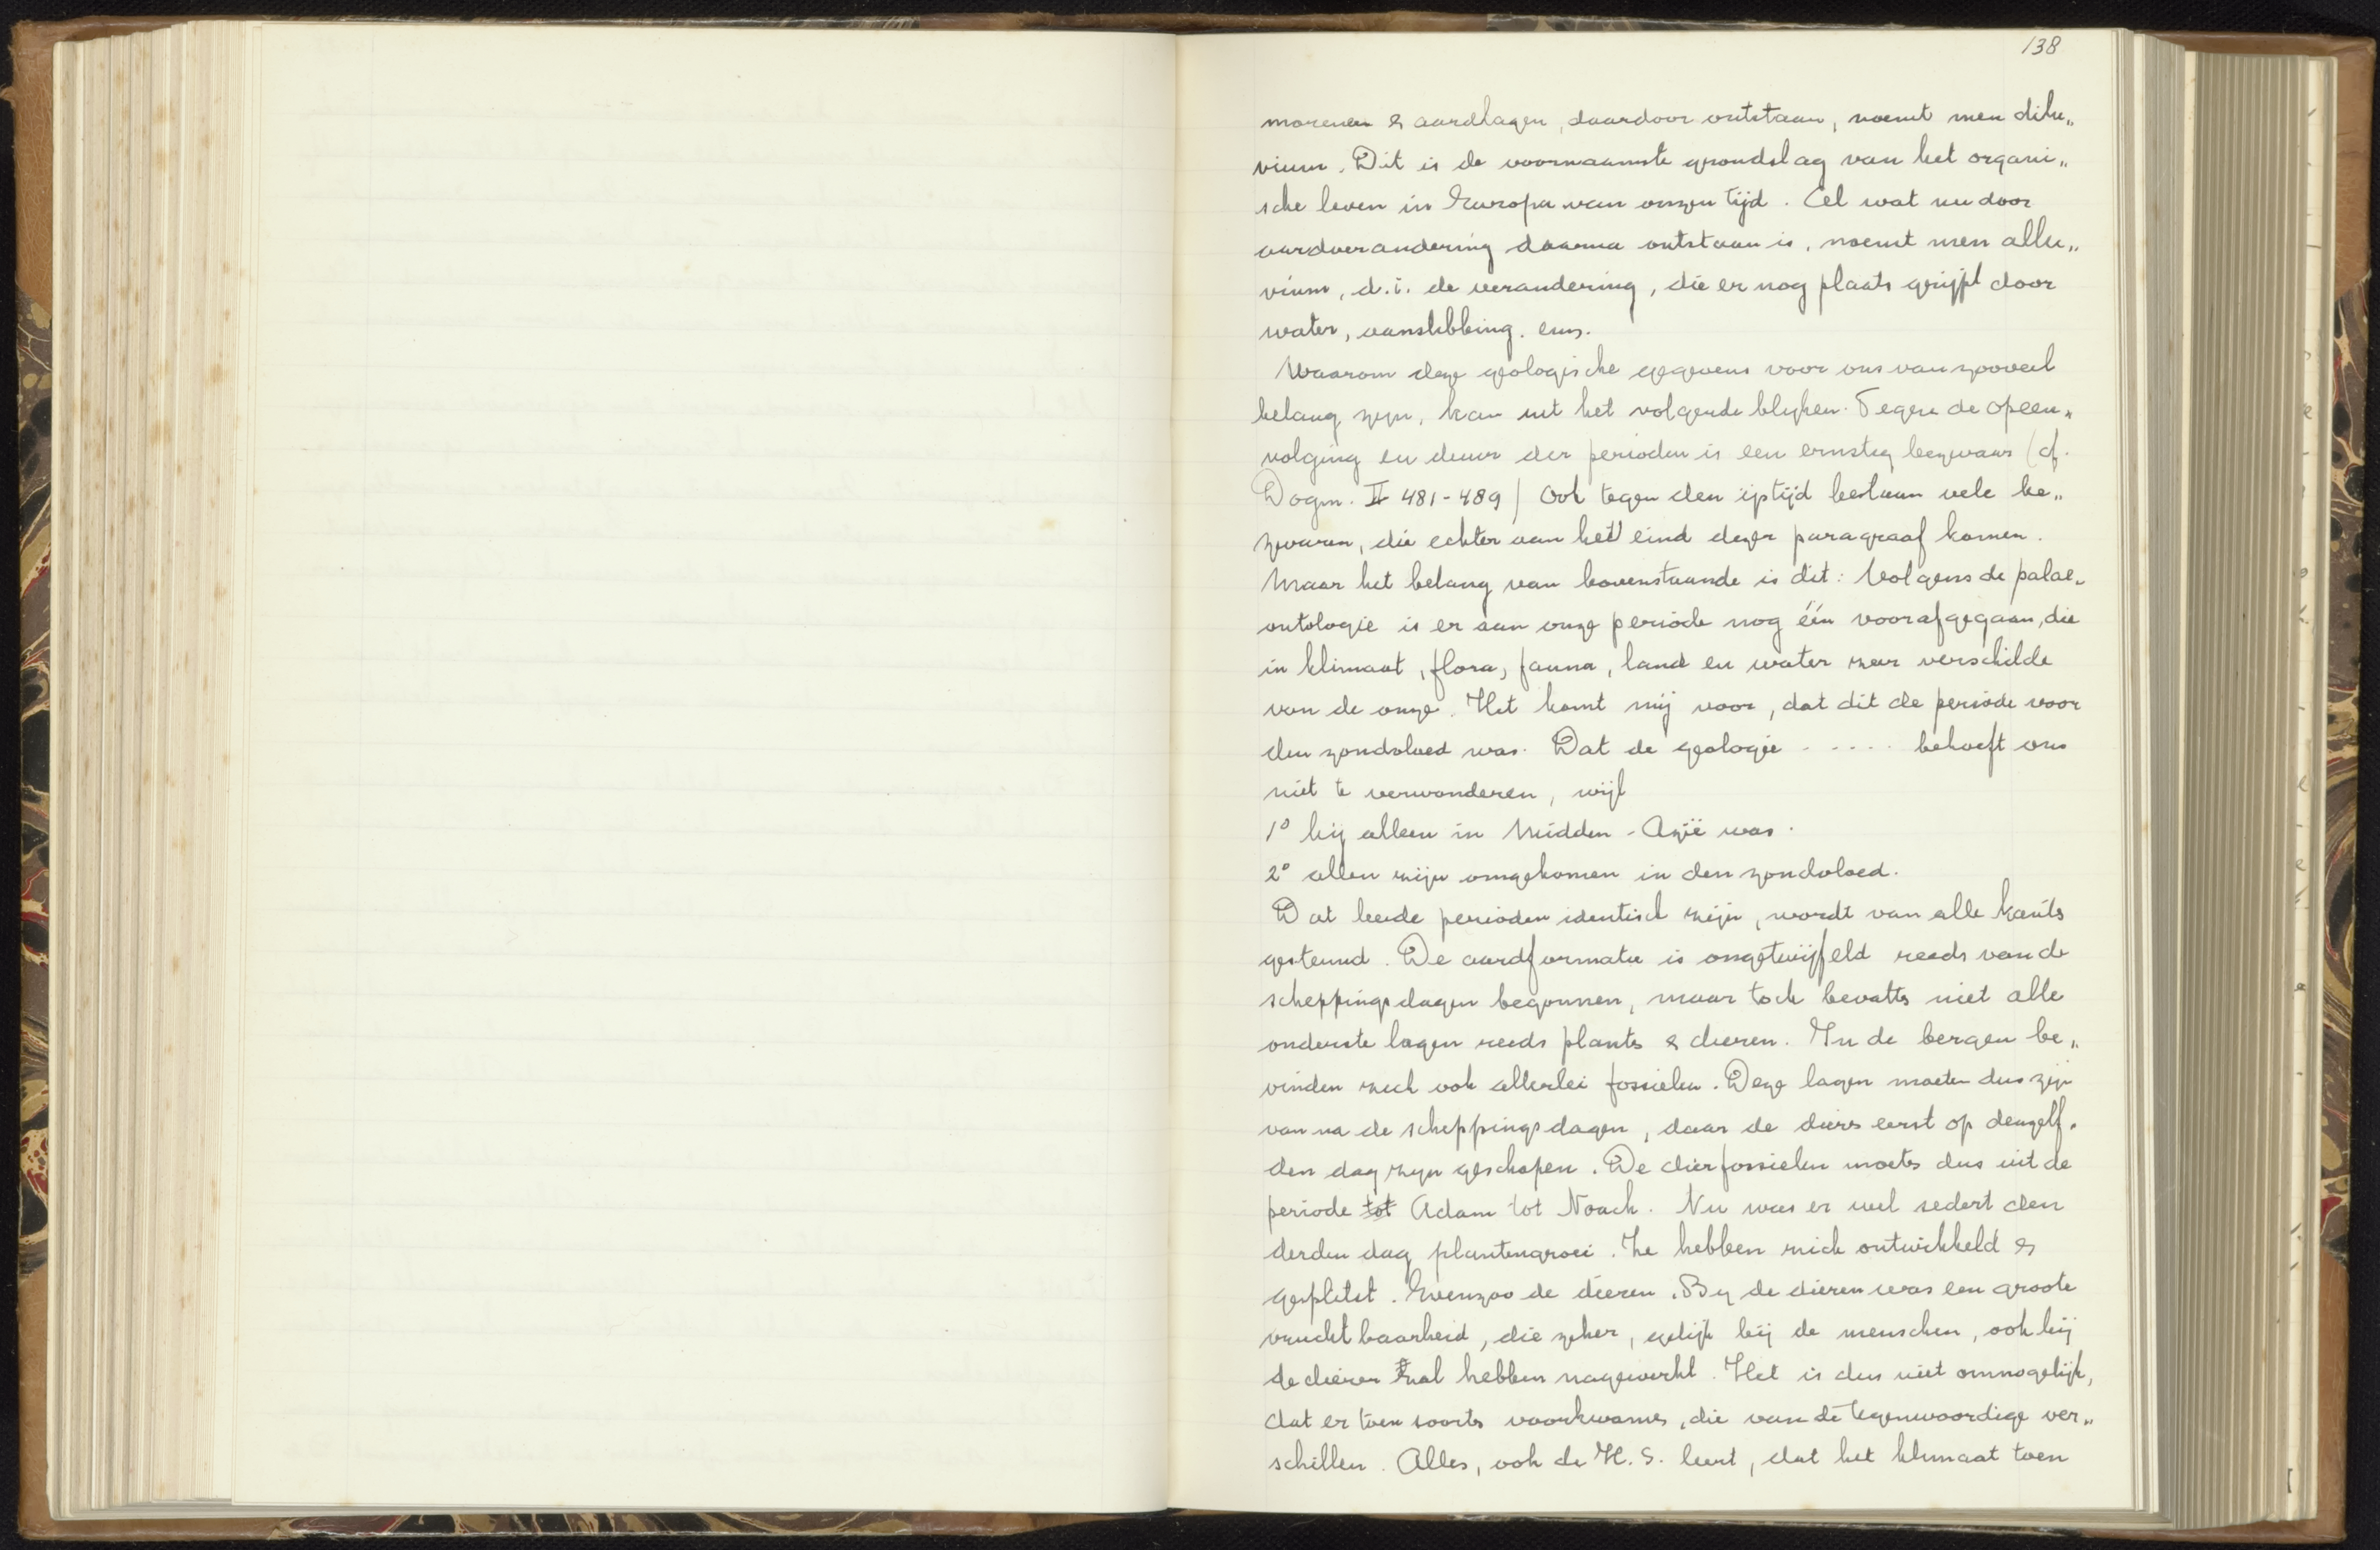 138
morenen & aardlagen, daardoor ontstaan, noemt men dilu„
vium. Dit is de voornaamste grondslag van het organi„
sche leven in Europa van onzen tijd. Al wat nu door
aardverandering daarna ontstaan is, noemt men allu„
vium, d.i. de verandering, die er nog plaats grijpt door
water, aanslibbing. enz.
Waarom deze geologische gegevens voor ons van zooveel
belang zijn, kan uit het volgende blyken. Tegen de opeen„
volging en duur der perioden is een ernstig bezwaar (cf.
Dogm. II 481-489) Ook tegen den ijstijd bestaan vele be„
zwaren, die echter aan het eind dezer paragraaf komen.
Maar het belang van bovenstaande is dit: Volgens de palae„
ontologie is er aan onze periode nog één voorafgegaan, die
in klimaat, flora, fauna, land en water zeer verschilde
van de onze. Het komt mij voor, dat dit de periode voor
den zondvloed was. Dat de geologie ..... behoeft ons
niet te verwonderen, wijl
1° hij alleen in Midden-Azië was.
2° allen zijn omgekomen in den zondvloed.
Dat beide perioden identisch zijn, wordt van alle kants
gesteund. De aardformatie is ongetwijfeld reeds van de
scheppingsdagen begonnen, maar toch bevatts niet alle
onderste lagen reeds plants & dieren. In de bergen be„
vinden zich ook allerlei fossielen. Deze lagen moeten dus zijn
van na de scheppingsdagen, daar de diers eerst op denzelf„
den dag zyn geschapen. De dierfossielen moets dus uit de
periode tot Adam tot Noach. Nu was er wel sedert den
derden dag plantengroei. Ze hebben zich ontwikkeld &
gesplitst. Evenzoo de dieren. By de dieren was een groote
vruchtbaarheid, die zeker, gelijk bij de menschen, ook bij
de dieren zal hebben nagewerkt. Het is dus niet onmogelijk,
dat er toen soorts voorkwams, die van de tegenwoordige ver„
schillen. Alles, ook de H.S. leert, dat het klimaat toen